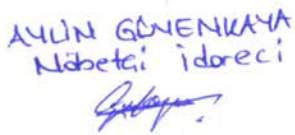 AYLİN GÜNENKAYA
Nöbetçi idareci